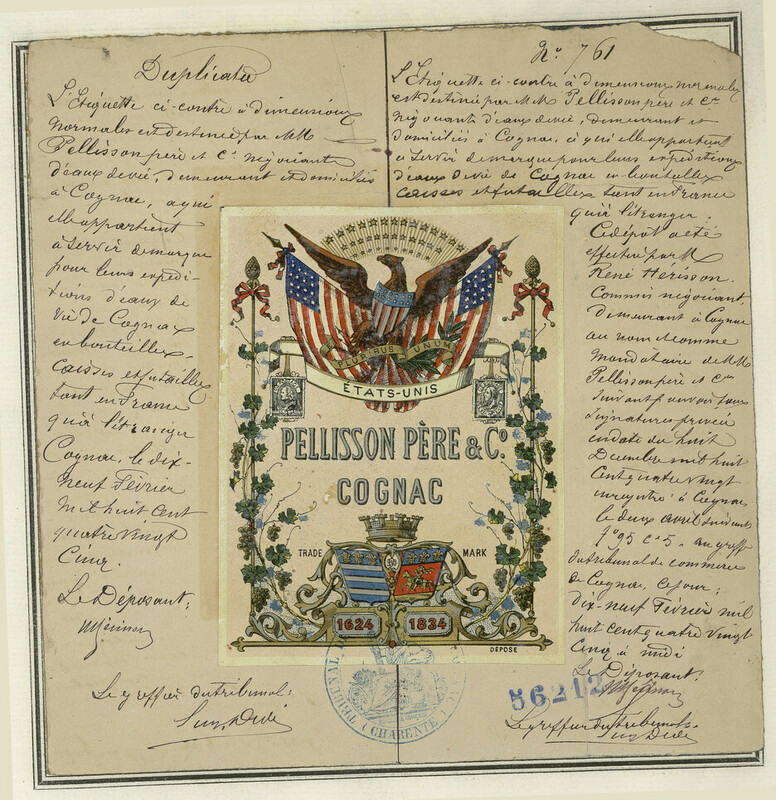 Duplicata
L'Etiquette ci-contre à dimensions
normales est destinée par MM
Pellisson père et Cie négociants
d'eaux de vie, demeurant et domiciliés
à Cognac, a qui
elle appartient
à servir de marque
pour leurs expédi-
tions d'eaux de
vie de Cognac
en bouteilles
caisses et futailles
tant en France
qu'à l'étranger
Cognac, le dix-
neuf Février
mil huit cent
quatre vingt
Cinq.
Le Déposant;
Le greffier du tribunal:
No 761
L'Etiquette ci-contre à dimensions normales
est destinée par MM. Pellisson père et Cie
négociants d'eaux de vie, demeurant et
domiciliés à Cognac, à qui elle appartient
à servir de marque pour leurs expéditions
d'eaux de vie de Cognac en bouteilles
caisses et futailles tant en France
qu'à l'étranger.
Ce dépôt a été
effectué par M
René Hérisson.
Commis négociant
demeurant à Cognac
au nom et comme
mandataire de MM
Pellisson père et Cie
suivant pouvoir sous
signatures privées
en date du huit
Décembre mil huit
Cent quatre vingt
enregistré à Cognac
le deux avril suivant
fo 95 Co 5. au greffe
du tribunal de commerce
de Cognac, ce jour;
dix-neuf Février mil
huit cent quatre vingt
Cinq à midi
Le Déposant:
Le greffier du tribunal:
PLURIBUS UNUM
ÉTATS-UNIS
PELLISSON PÈRE & Co.
COGNAC
TRADE MARK
1624 1834
DÉPOSÉ
TRIBUNAL
(CHARENTE)
56212